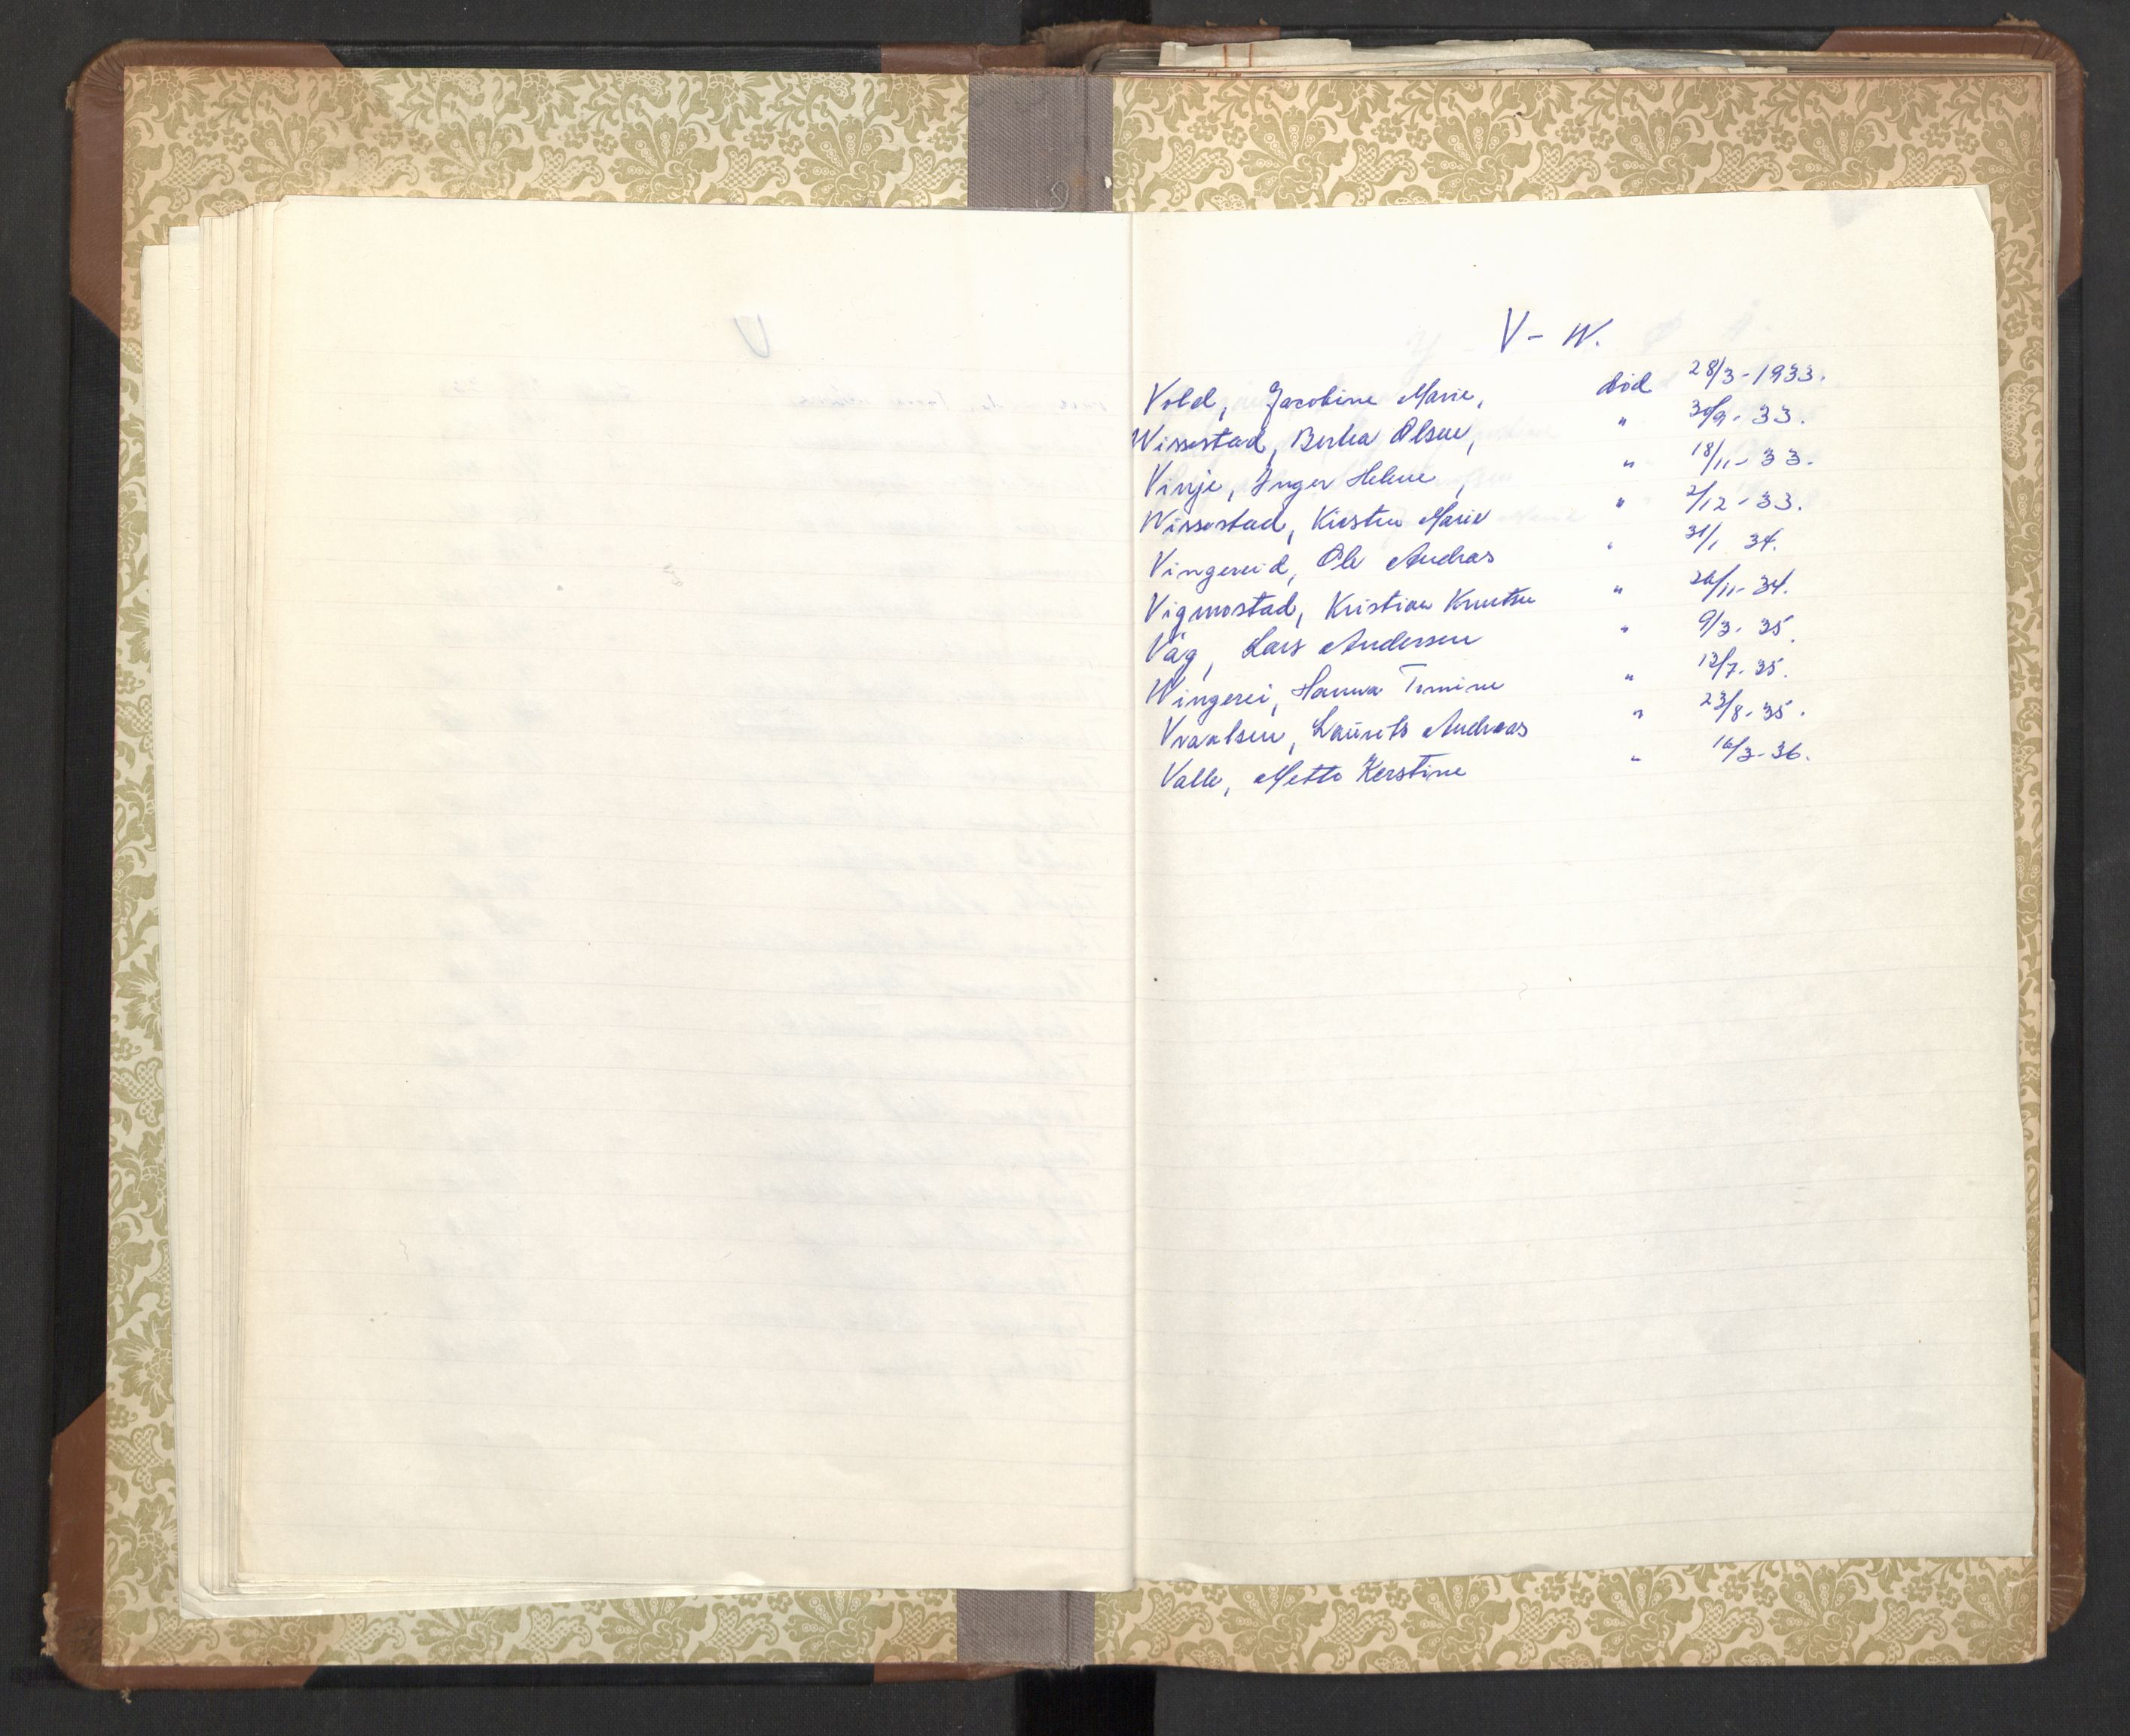 U
V - W.
Vold, Jacobine Marie, död 28/3-1933.
Wissestad, Berta Olsen, " 30/9- 33.
Vinje, Inger Helene, " 18/11- 33.
Wissestad, Kirsten Marie " 2/12 - 33.
Vingereid, Ole Andreas " 31/1 34.
Vigmostad, Kristian Knutsen " 26/11- 34.
Våg, Lars Andersen " 9/3- 35.
Wingerei, Hanna Tomine " 12/7- 35.
Vraalsen, Laurits Andreas " 23/8- 35.
Valle, Mette Kerstine " 16/3- 36.